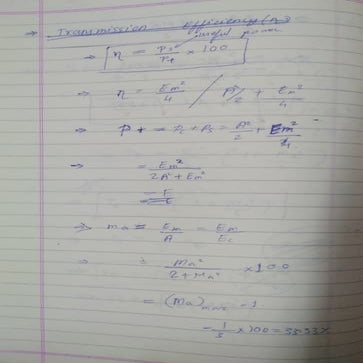 → Transmission efficiency (η)
useful power
→ η = Ps/Pt × 100
→ η = Em²/4 / A²/2 + Em²/4
→ Pt = Pc + Ps = A²/2 + Em²/4
→ = Em²/2A² + Em²
→ ma = Em/A = Em/Ec
→ Ma²/2+Ma² × 100
= (Ma)max - 1
- 1/3 × 100 = 33.33%